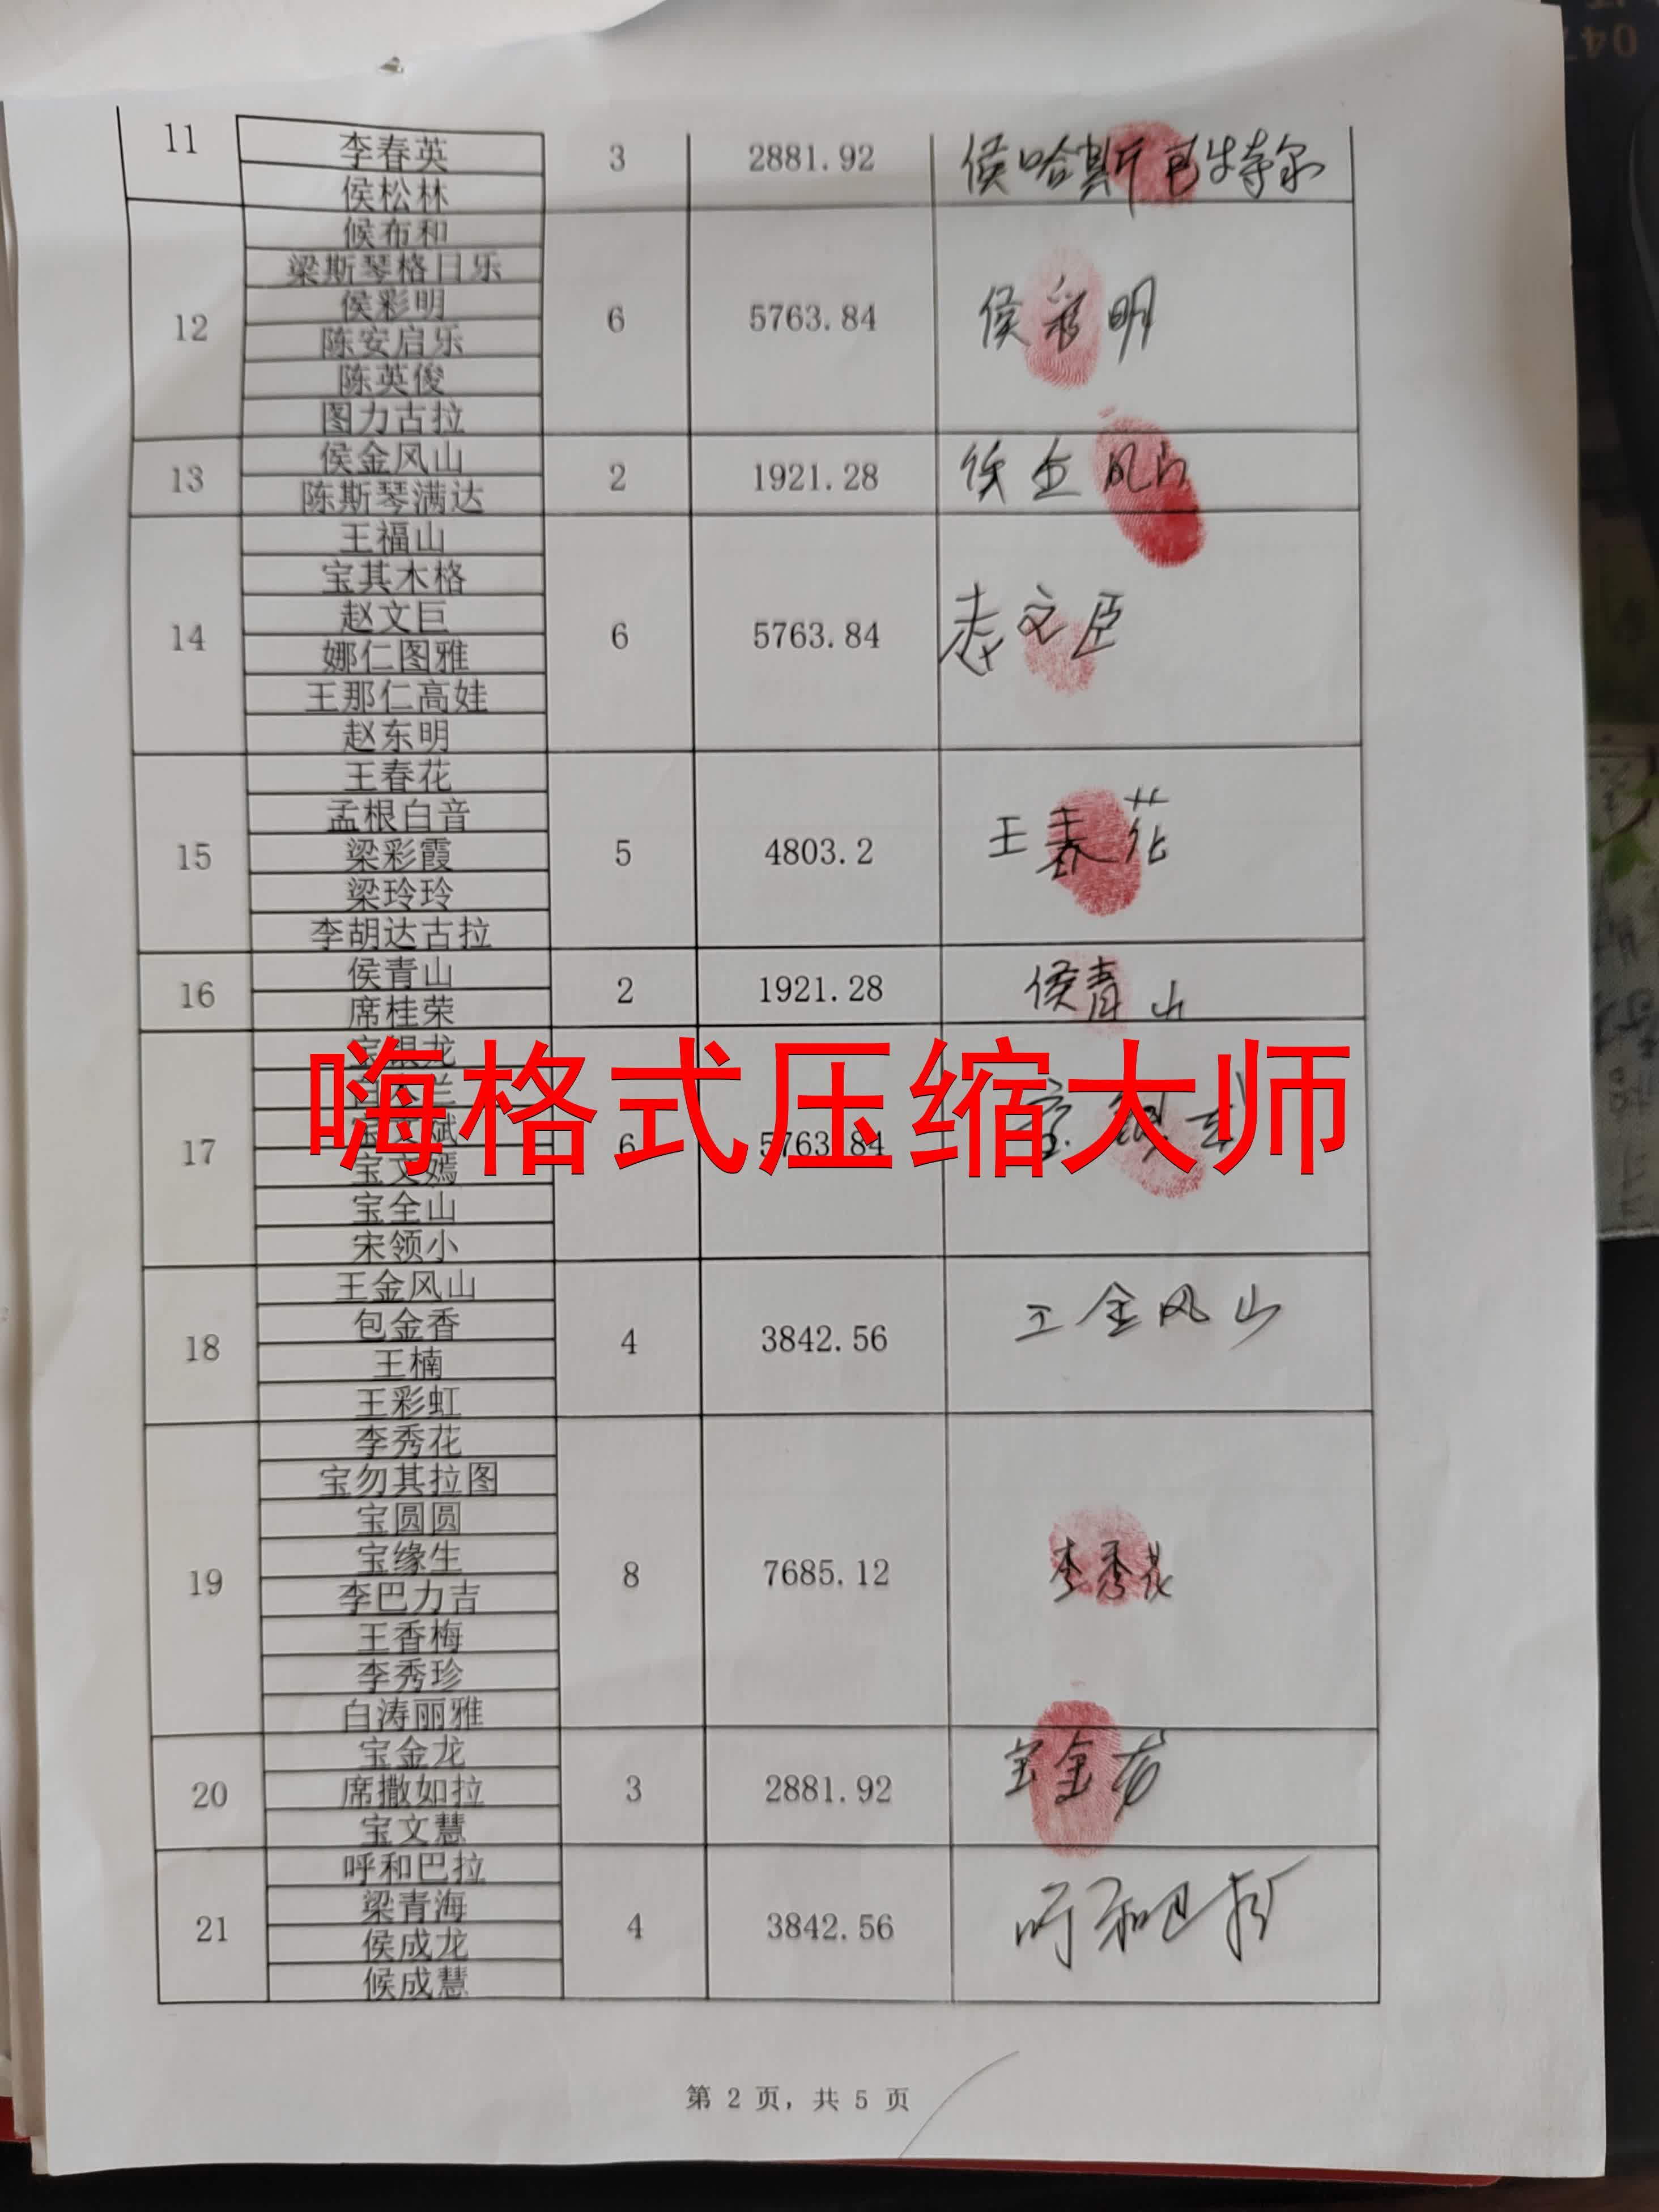 11 李春英 3 2881.92 侯哈斯巴特尔
侯松林
12 候布和 6 5763.84 侯彩明
梁斯琴格日乐
侯彩明
陈安启乐
陈英俊
图力古拉
13 侯金风山 2 1921.28 侯金风山
陈斯琴满达
14 王福山 6 5763.84 赵文臣
宝其木格
赵文巨
娜仁图雅
王那仁高娃
赵东明
15 王春花 5 4803.2 王春花
孟根白音
梁彩霞
梁玲玲
李胡达古拉
16 侯青山 2 1921.28 侯青山
席桂荣
17 宝银龙 6 5763.84 宝银龙
嗨格式压缩大师
宝文斌
宝文嫣
宝全山
宋领小
18 王金风山 4 3842.56 王金风山
包金香
王楠
王彩虹
19 李秀花 8 7685.12 李秀花
宝勿其拉图
宝圆圆
宝缘生
李巴力吉
王香梅
李秀珍
白涛丽雅
20 宝金龙 3 2881.92 宝金龙
席撒如拉
宝文慧
21 呼和巴拉 4 3842.56 呼和巴拉
梁青海
侯成龙
候成慧
第 2 页，共 5 页